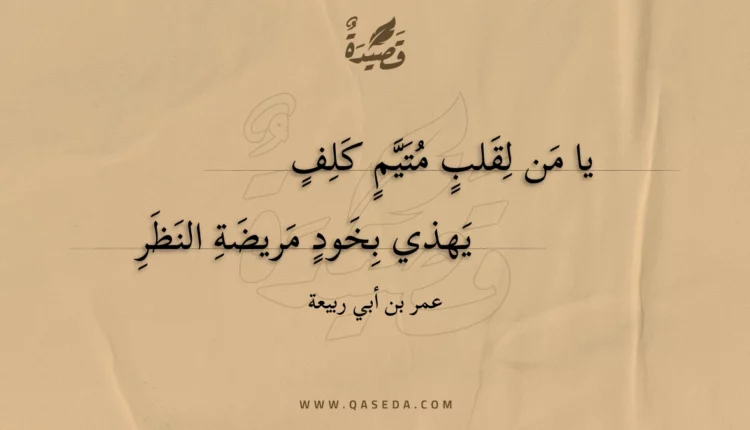 قَصِيدَةٌ
يا مَن لِقَلبٍ مُتَيَّمٍ كَلِفٍ
يَهذي بِخَودٍ مَريضَةِ النَظَرِ
عمر بن أبي ربيعة
WWW.QASEDA.COM